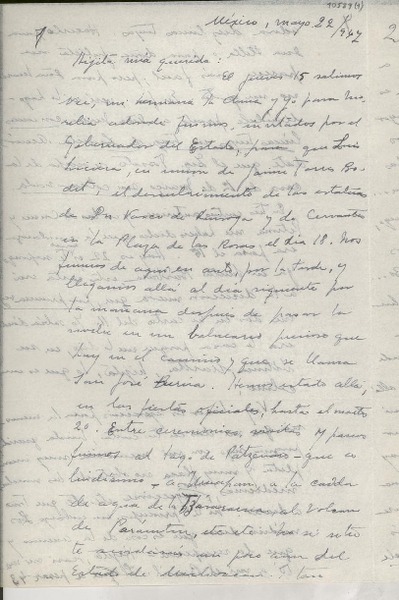 40529 (1)
México, mayo 22/942
1
Hijita mía querida:
El jueves 15 salimos
mi hermana, la chica y yo para Mo-
relia adonde fuimos, invitados por el
Gobernador del Estado, para que Luis
hiciera, en unión de Jaime Torres Bo-
det el descubrimiento de las estatuas
de Dn. Vasco de Quiroga y de Cervantes
en la Plaza de las Rosas el día 18. Nos
fuimos de aquí en auto, por la tarde, y
llegamos allá al día siguiente por
la mañana después de pasar la
noche en un balneario precioso que
hay en el camino y que se llama
San José Purua. Hemos estado allá,
en las fiestas oficiales, hasta el martes
20. Entre ceremonias, visitas y paseos
fuimos al lago de Pátzcuaro - que es
lindísimo - a Uruapan, a la caída
de agua de la Tzararacua, al Volcán
de Paricutín, etc, etc.
un poco
Estado de Michoacán.